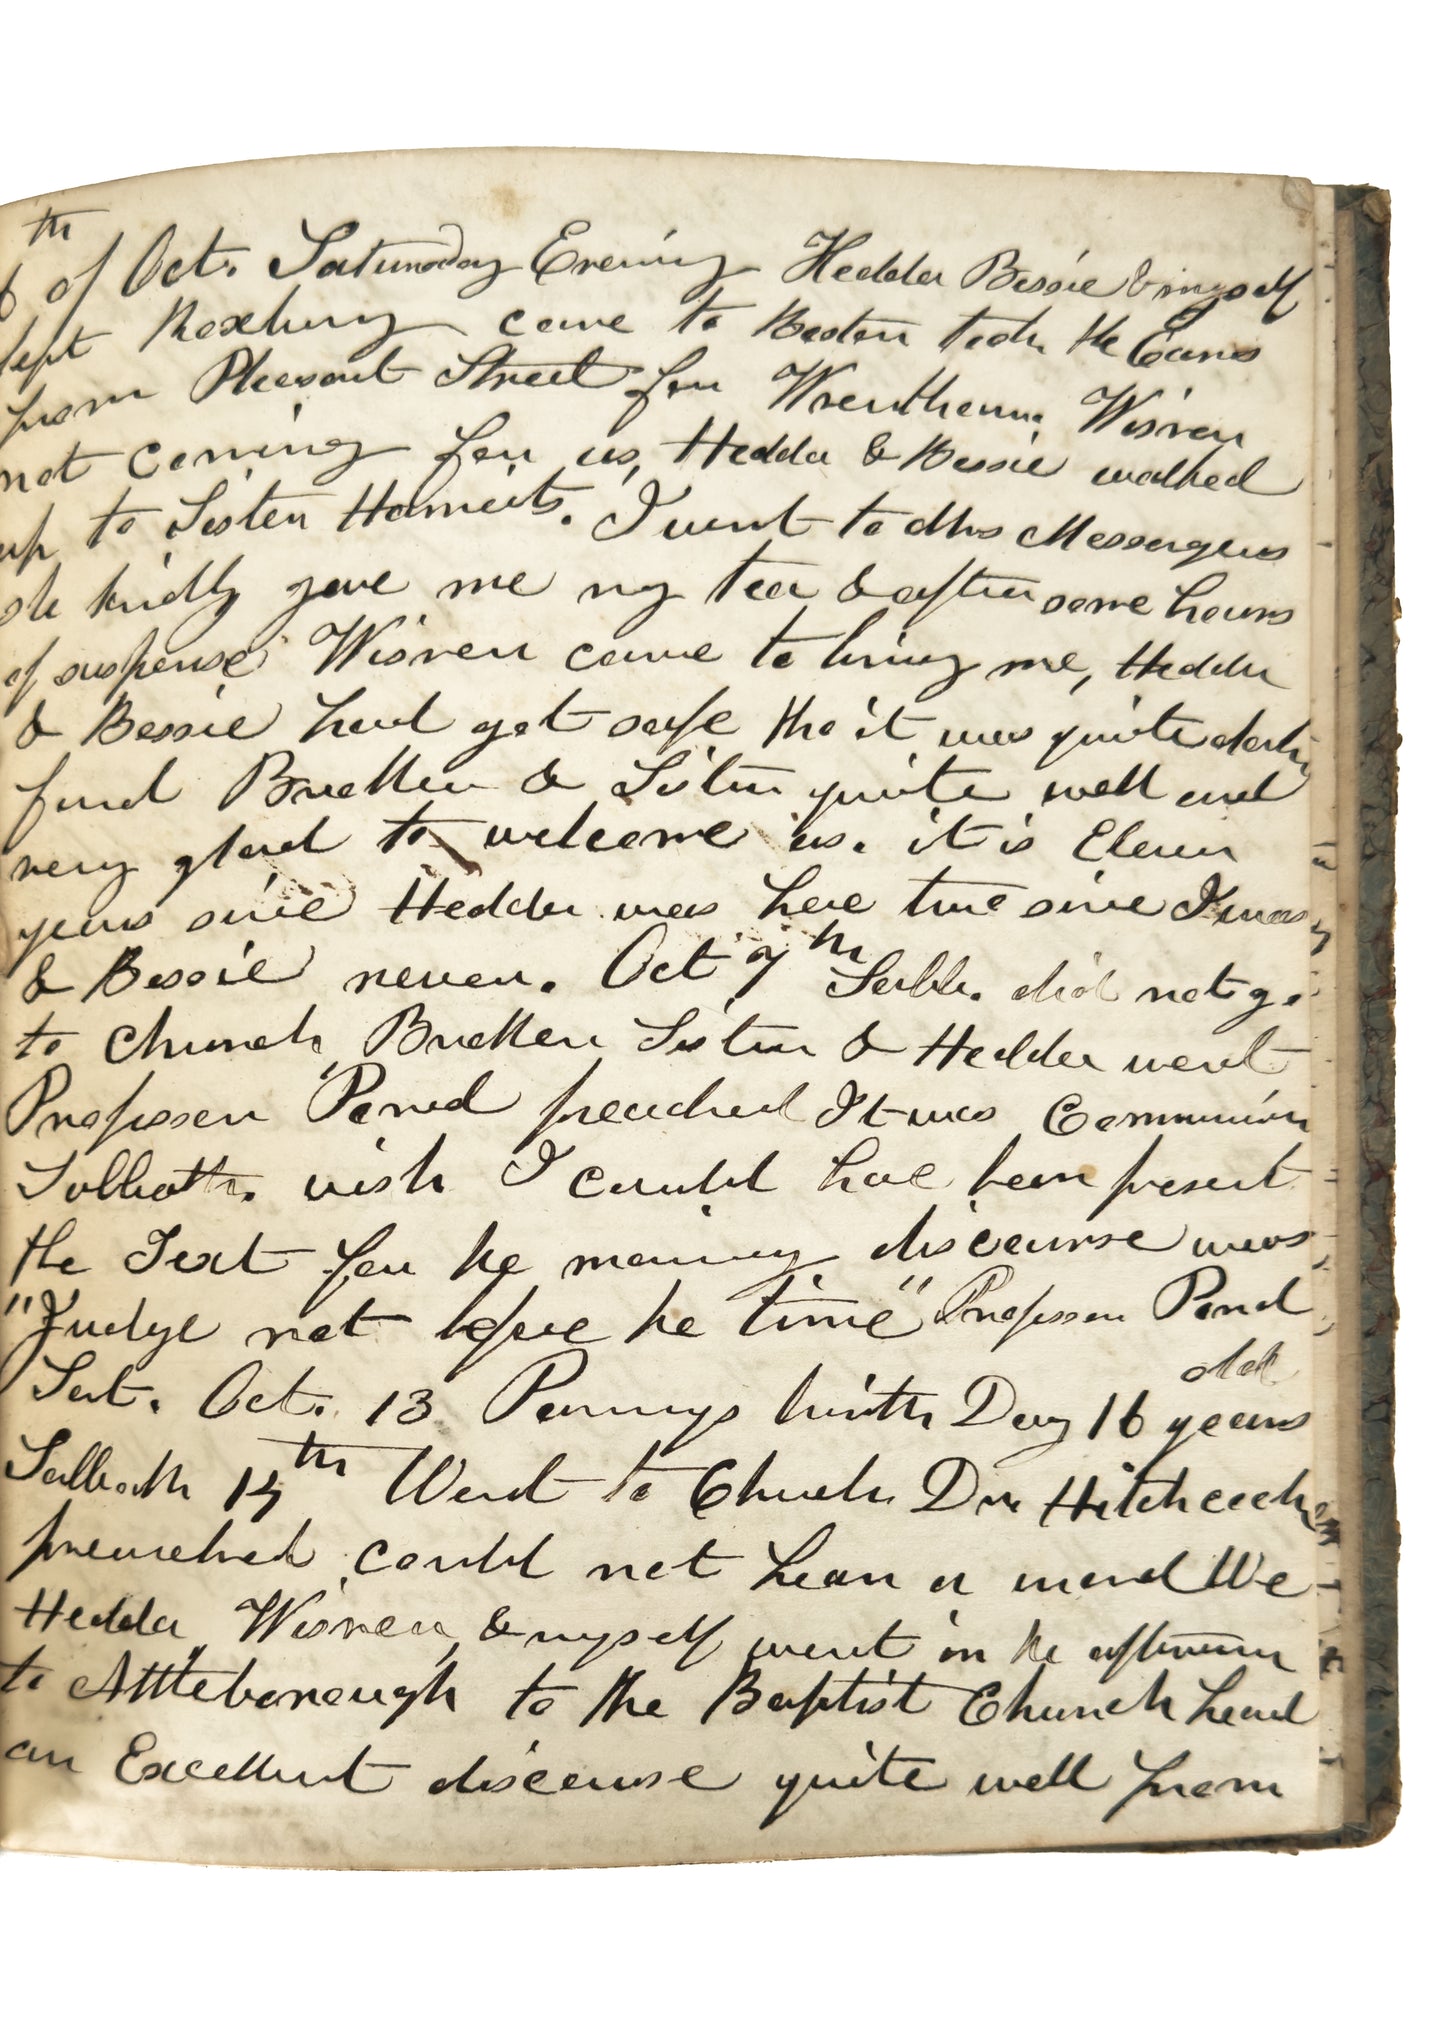 6th of Oct. Saturday Evening Hedda Bessie & myself
left Roxbury came to Boston took the Cars
from Pleasant Street for Wrentham. Wisven
not coming for us, Hedda & Bessie walked
up to Sister Harriets. I went to Mrs Messengers
she kindly gave me my tea & after some hours
of suspense Wisven came to bring me, Hedda
& Bessie had got safe tho it was quite dark
found Brother & Sister quite well and
very glad to welcome us. it is Eleven
years since Hedda was here two since I was
& Bessie never. Oct 7th Sabb. did not go
to church, Brother Sister & Hedda went
Professor Pond preached It was Communion
Sabbath. wish I could have been present
the Text for the morning discourse was
"Judge not before the time" Professor Pond
Sat. Oct. 13 Pennys birth Day 16 years old
Sabbath 14th Went to Church Dr Hitchcock
preached could not hear a word We
Hedda, Wisven, & myself went in the afternoon
to Attleborough to the Baptist Church heard
an Excellent discourse quite well from